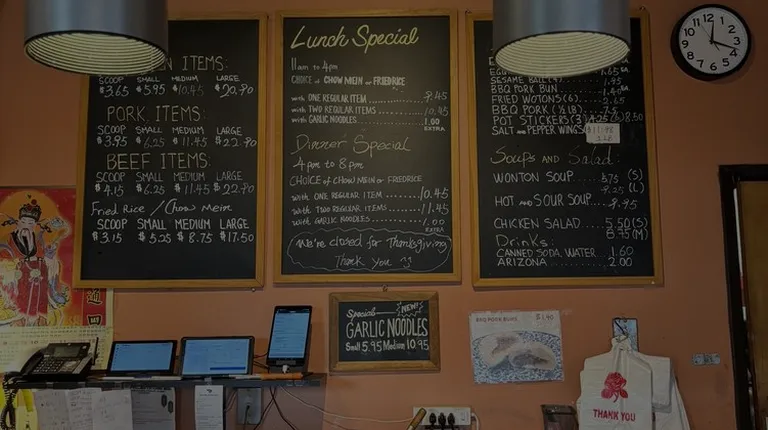 N ITEMS:
SCOOP SMALL MEDIUM LARGE
$3.65 $5.95 $10.45 $20.90
PORK ITEMS:
SCOOP SMALL MEDIUM LARGE
$3.95 $6.25 $11.45 $22.90
BEEF ITEMS:
SCOOP SMALL MEDIUM LARGE
$4.15 $6.25 $11.45 $22.90
Fried Rice / Chow Mein
SCOOP SMALL MEDIUM LARGE
$3.15 $5.25 $8.75 $17.50
Lunch Special
11am to 4pm
CHOICE of CHOW MEIN or FRIEDRICE
with ONE REGULAR ITEM 9.45
with TWO REGULAR ITEMS 10.45
with GARLIC NOODLES 1.00
EXTRA
Dinner Special
4pm to 8pm
CHOICE of CHOW MEIN or FRIEDRICE
with ONE REGULAR ITEM 10.45
with TWO REGULAR ITEMS 11.45
with GARLIC NOODLES 1.00
EXTRA
We're closed for Thanksgiving
Thank you
SESAME BALL
BBQ PORK BUN
FRIED WOTONS(6) 2.65
BBQ PORK (½ lB) 7.5
POT STICKERS(3) 4.25 (6) 8.50
SALT and PEPPER WINGS $11.98
Soups AND Salad:
WONTON SOUP (S)
9.25 (L)
HOT AND SOUR SOUP 8.95
CHICKEN SALAD 5.50(S)
8.75(M)
Drinks:
CANNED SODA, WATER 1.60
ARIZONA 2.00
Specials NEW!
GARLIC NOODLES
Small 5.95 Medium 10.95
BBQ PORK BUNS $1.40
THANK YOU
12 1 2 3 4 5 6 7 8 9 10 11